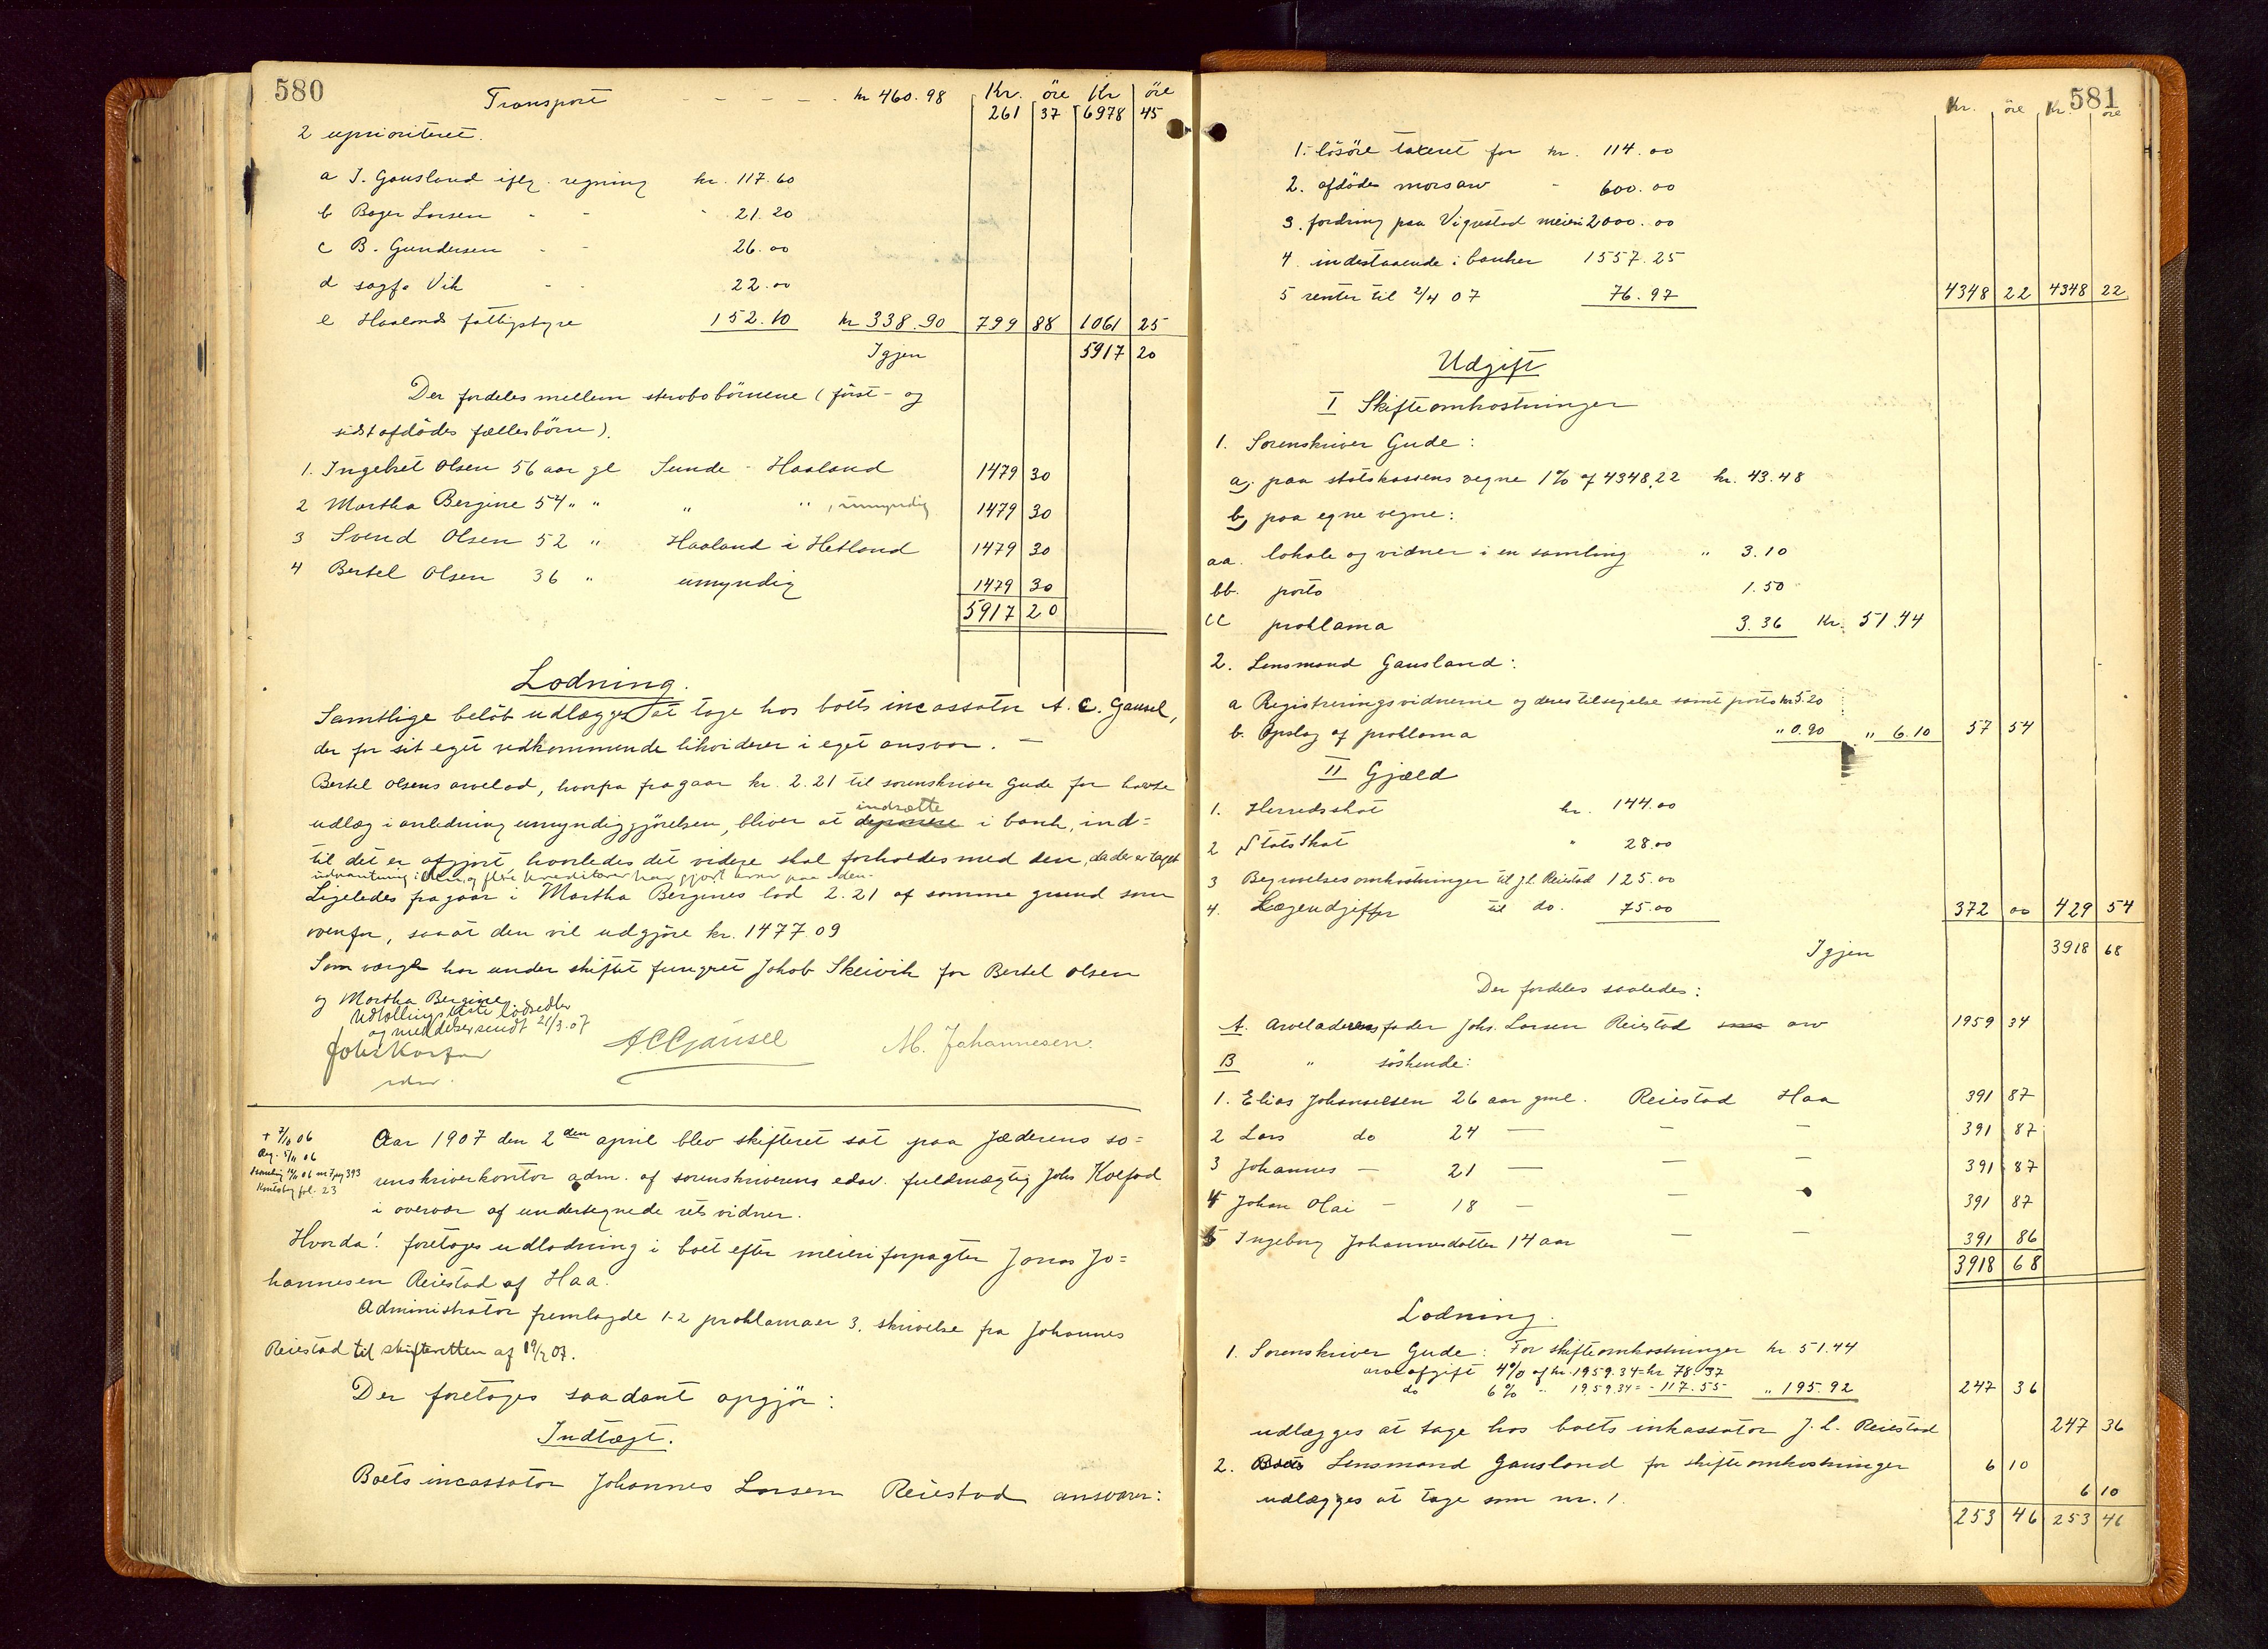 580
Transport - - - - kr 460.98 Kr. öre Kr öre
261 37 6978 45
2 uprioriteret.
a J. Gausland iflg. regning kr. 117.60
b Bager Larsen - - - 21.20
c B. Gundersen - - 26.00
d sagf. Vik - - 22.00
e Haalands fattigstyre 152.10 kr 338.90 799 88 1061 25
Igjen 5917 20
Der fordeles mellem sterbobörnene (först- og
sidstafdödes fællesbörn).
1. Ingebret Olsen 56 aar gl Sunde - Haaland 1479 30
2 Martha Bergine 54 " " " " , umyndig 1479 30
3 Svend Olsen 52 " Haaland i Hetland 1479 30
4 Bertel Olsen 36 " umyndig 1479 30
5917 20
Lodning.
Samtlige belöb udlægges at tage hos boets incassator A. C. Gausel,
der for sit eget vedkommende likviderer i eget ansvar. —
Bertel Olsens arvelod, hvorpa fragaar kr. 2.21 til sorenskriver Gude for havte
indsætte
udlæg i anledning umyndiggjörelsen, bliver at deponere i bank, ind=
til det er afgjort, hvorledes det videre skal forholdes med den, da der er taget
udpantning i den, og flere kreditorer har gjort krav paa den.
Ligeledes fragaar i Martha Bergines lod 2.21 af samme grund som
ovenfor, saaat den vil udgjöre kr. 1477.09
Som værge har under skiftet fungeret Jakob Skeivik for Bertel Olsen
og Martha Bergine.
Udlodningsliste lodsedler
og meddelser sendt 21/3.07
A C Gausel M. Johannesen.
+ 7/10 06
Reg. 5/11 06
fol. 23
Aar 1907 den 2den april blev skifteret sat paa Jæderens so=
renskriverkontor adm. af sorenskriverens edsv. fuldmægtig Johs Kolfod
i overvær af undertegnede rets vidner.
Hvorda! foretoges udlodning i boet efter meieriforpagter Jonas Jo=
hannesen Reiestad af Haa.
Administrator fremlagde 1-2 proklamaer 3. skrivelse fra Johannes
Reiestad til skifteretten af 19/2 07.
Der foretoges saadant opgjör:
Indtægt.
Boets incassator Johannes Larsen Reiestad ansvarer:
581
Kr. öre Kr. öre
1. lösöre taxeret for kr. 114.00
2. afdödes morsarv - 600.00
3. fordring paa Vigrestad meieri 2000.00
4. indestaaende i banker 1557.25
5 renter til 2/4 07 76.97 4348 22 4348 22
Udgift
I Skifteomkostninger
1. Sorenskriver Gude:
a, paa statskassens vegne 1% af 4348,22 kr. 43.48
b, paa egne vegne:
aa. lokale og vidner i en samling " 3.10
bb. porto 1.50
cc proklama 3.36 Kr. 51.44
2. Lensmand Gausland:
a Registreringsvidnerne og deres tilsigelse samt porto kr 5.20
b. Opslag af proklama " 0.90 " 6.10 57 54
II Gjæld
1. Herredsskat kr. 144.00
2 Statsskat " 28.00
3 Begravelsesomkostninger til J. L. Reiestad 125.00
4. Lægeudgifter til do. 75.00 372 00 429 54
Igjen 3918 68
Der fordeles saaledes:
A. Arveladerens fader Johs. Larsen Reiestad som arv 1959 34
B " söskende:
1. Elias Johannesen 26 aar gml. Reiestad Haa 391 87
2 Lars do 24 — — — 391 87
3 Johannes — 21 — — — 391 87
4 Johan Olai — 18 — — 391 87
5 Ingeborg Johannesdatter 14 aar — — 391 86
3918 68
Lodning.
1. Sorenskriver Gude: For skifteomkostninger kr 51.44
arveafgift 4% af kr. 1959.34 = kr 78.37
do 6% " 1959.34 = - 117.55 " 195.92 247 36
udlægges at tage hos boets inkassator J. L. Reiestad 247 36
2. Boets Lensmand Gausland for skifteomkostninger 6 10
udlægges at tage som nr. 1. 6 10
253 46 253 46